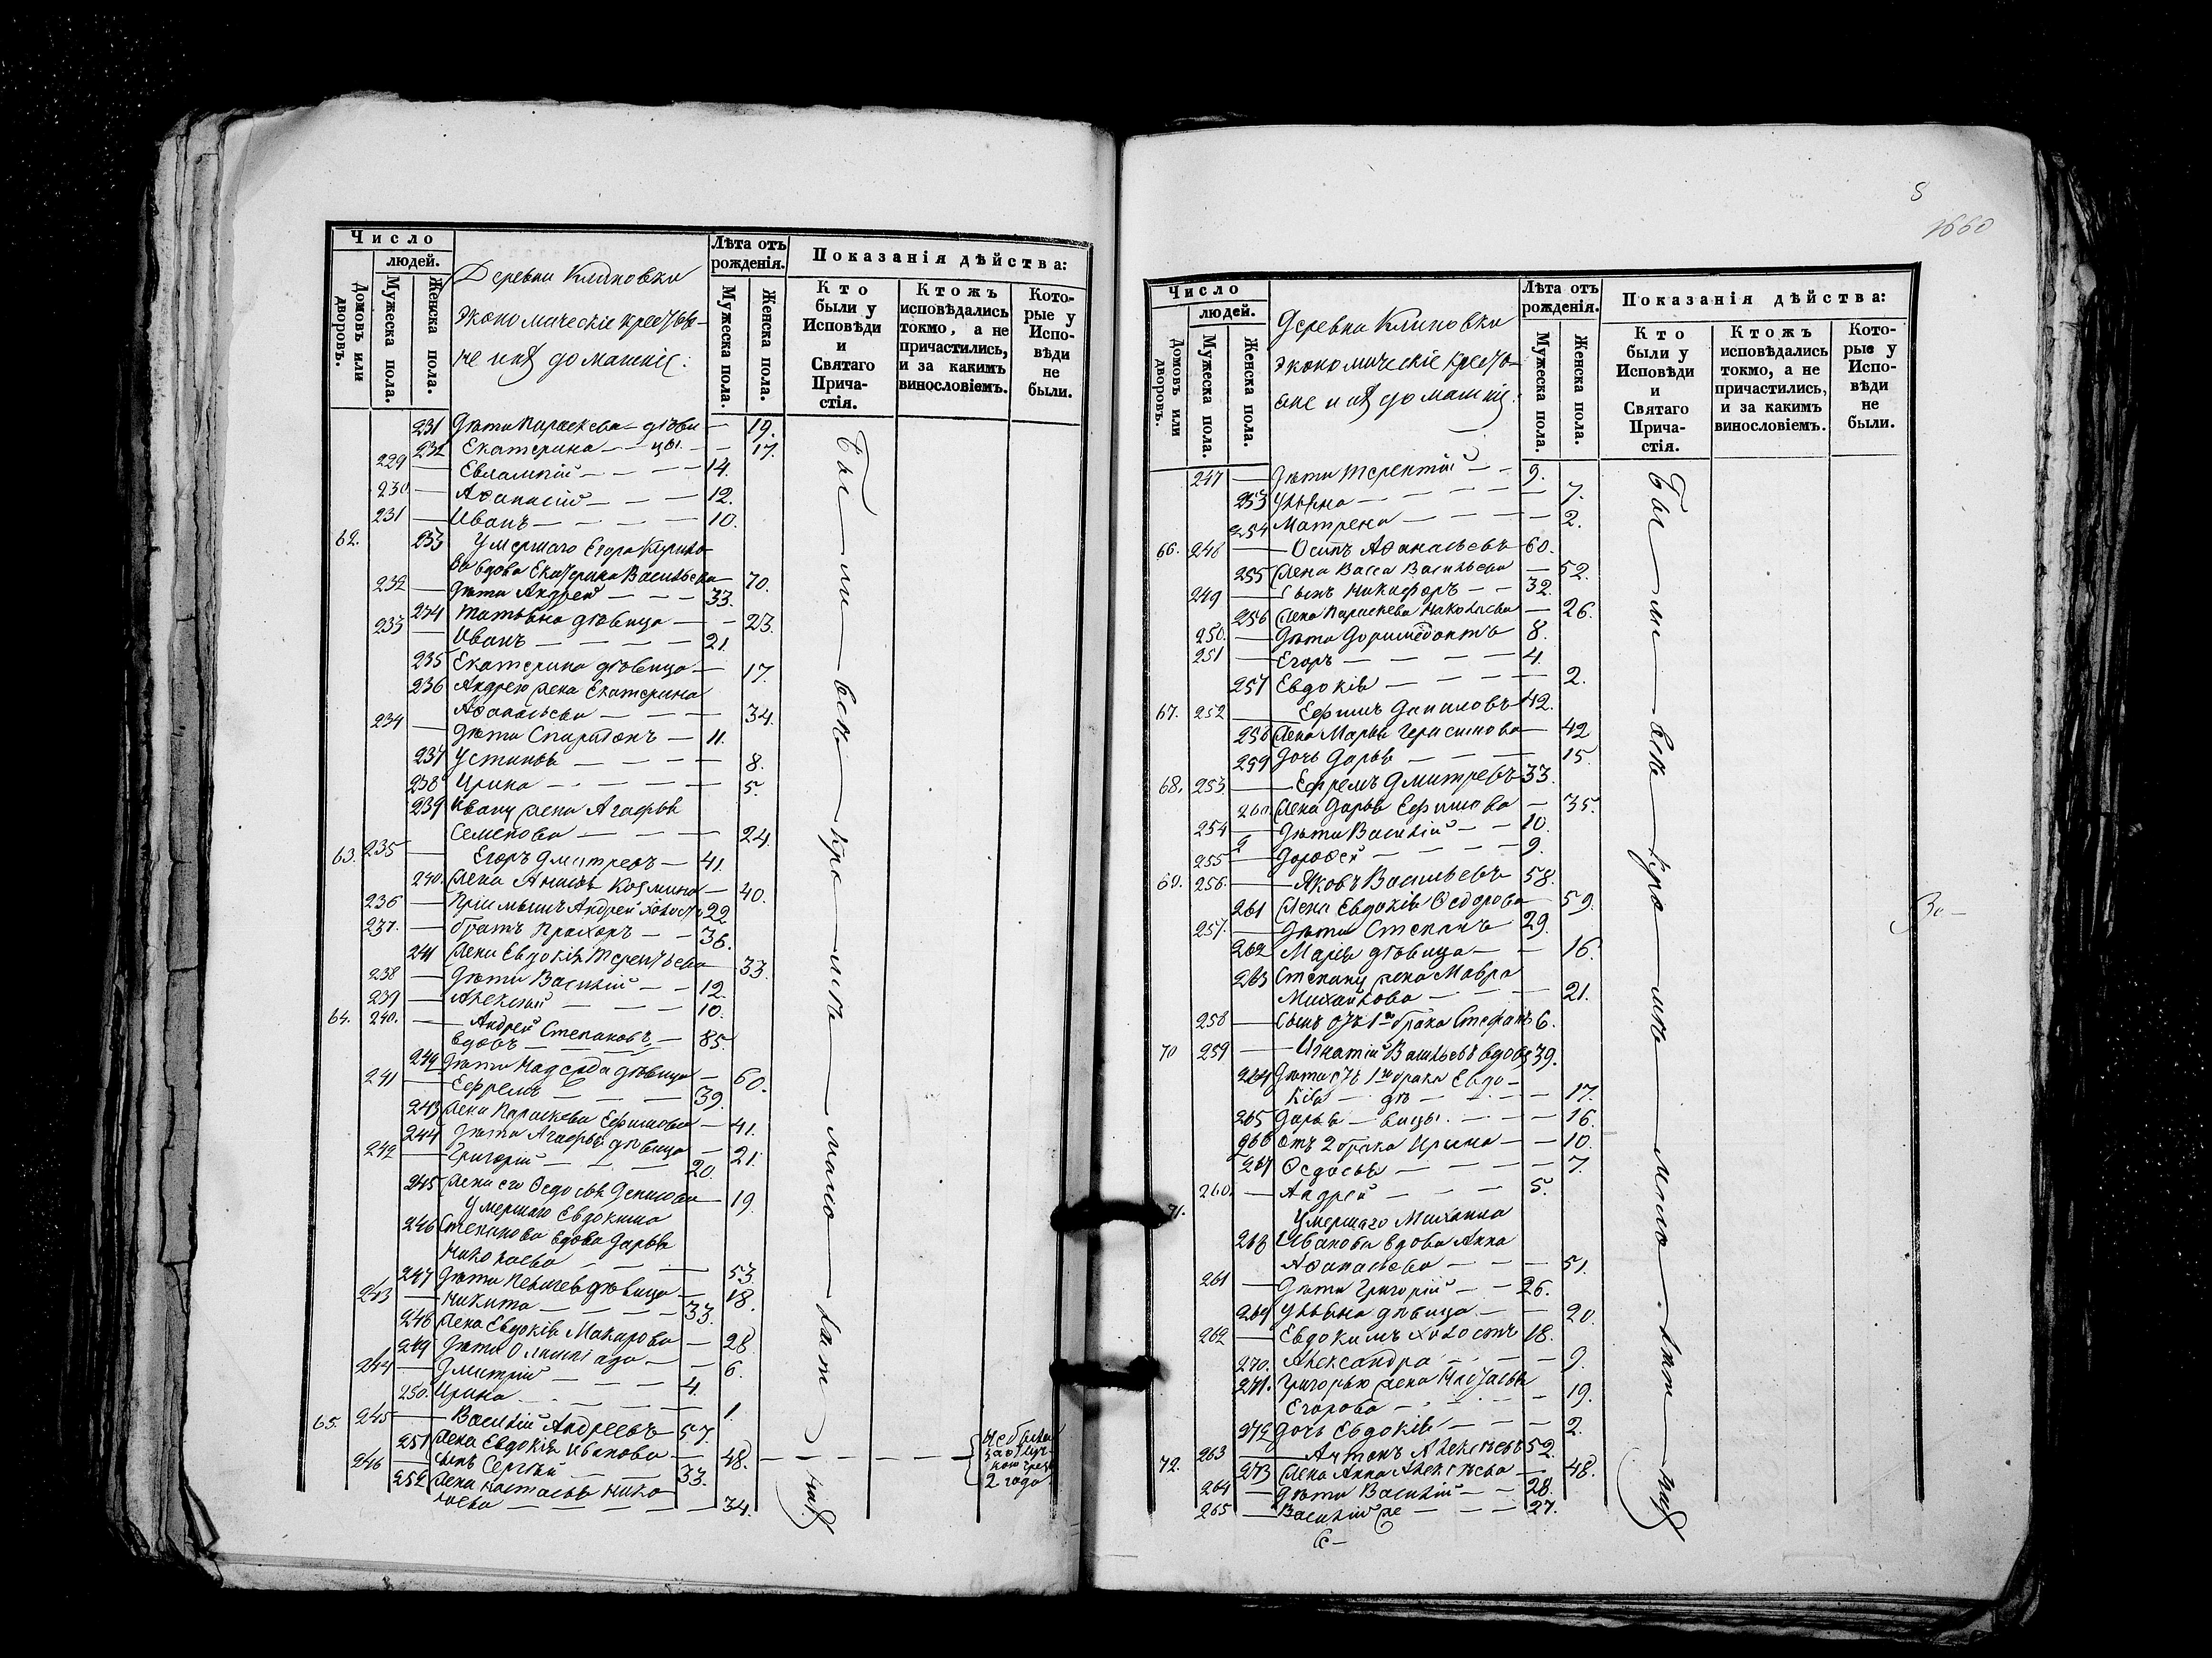 Число
людей.
Домовъ или дворовъ.
Мужеска пола.
Женска пола.
Деревни Климовки
экономическіе крестья-
не и ихъ домашніе:
Лѣта отъ рожденія.
Мужеска пола.
Женска пола.
Показанія дѣйства:
Кто были у Исповѣди и Святаго Причастія.
Ктожъ исповѣдались токмо, а не причастились, и за какимъ винословіемъ.
Которые у Исповѣди не были.
231 Дѣти Параскева — дѣви — 19.
232 Екатерина — цы. — 17.
229 — Евлампій — 14.
230 — Аѳанасій — 12.
231 — Иванъ — 10.
62. 233 Умершаго Егора
ва вдова Екатерина Васильева — 70.
232 — Дѣти Андрей — 33.
234 Татьяна дѣвица — 23.
233 — Иванъ — 21.
235 Екатерина дѣвица — 17.
236 Андрею жена Екатерина
Аѳанасьева — 34.
234 — Дѣти Спиридонъ — 11.
237 Устинья — 8.
238 Ирина — 5.
239 Ивану жена Агафья
Семенова — 24.
63. 235 — Егоръ Дмитревъ — 41.
240. Жена Анисья Козмина — 40.
236 — Пріимышъ Андрей холостъ 22
237. — братъ Прохоръ — 36.
241 Жена Евдокія Терентьева 33.
238 — Дѣти Василій — 12.
239 — Алексѣй — 10.
64. 240. — Андрей Степановъ
вдовъ — 85.
242 Дѣти Надежда дѣвица — 60.
241 — Ефремъ — 39.
243 Жена Параскева Ефимова — 41.
244 Дѣти Агафья дѣвица — 21.
242 — Григорій — 20.
245 Жена его Ѳедосья Денисова 19
Умершаго Евдокима
246 Степанова вдова Дарья
Николаева — 53.
247 Дѣти Пелагея дѣвица — 18.
243 — Никита — 33.
248 Жена Евдокія Макарова — 28
249 Дѣти Олимпіада — 6.
244 — Дмитрій — 4.
250. Ирина — 1.
65. 245 — Василій Андреевъ 57.
251 Жена Евдокія Иванова — 48.
246 — сынъ Сергѣй — 33.
252 Жена Настасья Нико-
лаева — 34.
Бы — ли — всѣ — кро — мѣ — мало — лѣт — ныхъ
Не была
за отлуч-
кою чрезъ
2 года
5
1660
Число
людей.
Домовъ или дворовъ.
Мужеска пола.
Женска пола.
Деревни Климовки
экономическіе кресть-
яне и ихъ домашніе.
Лѣта отъ рожденія.
Мужеска пола.
Женска пола.
Показанія дѣйства:
Кто были у Исповѣди и Святаго Причастія.
Ктожъ исповѣдались токмо, а не причастились, и за какимъ винословіемъ.
Которые у Исповѣди не были.
247 — Дѣти Терентій — 9.
253 Ульяна — 7.
254 Матрена — 2.
66. 248 — Осипъ Аѳанасьевъ 60.
255 Жена Васса Васильева — 52.
249 — Сынъ Никифоръ — 32.
256 Жена Параскева Николаева — 26.
250. — Дѣти Доримедонтъ 8.
251 — Егоръ — 4.
257 Евдокія — 2.
67. 252 — Ефимъ Даниловъ 42.
258 Жена Марья Герасимова — 42
259 Дочь Дарья — 15.
68. 253 — Ефремъ Дмитревъ 33.
260. Жена Дарья Ефимова — 35.
254 — Дѣти Василій — 10.
255 — Дороѳей — 9.
69. 256. — Яковъ Васильевъ 58.
261 Жена Евдокія Ѳедорова 59.
257. — Дѣти Степанъ 29.
262 Марія дѣвица — 16.
263 Степану жена Мавра
Михайлова — 21.
258 — Сынъ отъ 1го брака Стефанъ 6.
70 259 — Игнатій Васильевъ вдовъ 39.
264 Дѣти отъ 1го брака Евдо-
кія — дѣ — 17.
265 Дарья — вицы. — 16.
266 Отъ 2 брака Ирина — 10.
267 Ѳедосья — 7.
260. — Андрей — 5.
71. Умершаго Михаила
268 Иванова вдова Анна
Аѳанасьева — 51.
261 — Дѣти Григорій — 26.
269 Ульяна дѣвица — 20.
262 — Евдокимъ холостъ 18.
270. Александра — 9.
271. Григорью жена Настасья
Егорова — 19.
272 Дочь Евдокія — 2.
72. 263 — Антонъ Алексѣевъ 52.
273 Жена Анна Алексѣева — 48.
264 — Дѣти Василій — 28.
265 — Василій же — 27.
Бы — ли — всѣ — кро — мѣ — мало — лѣт — ныхъ